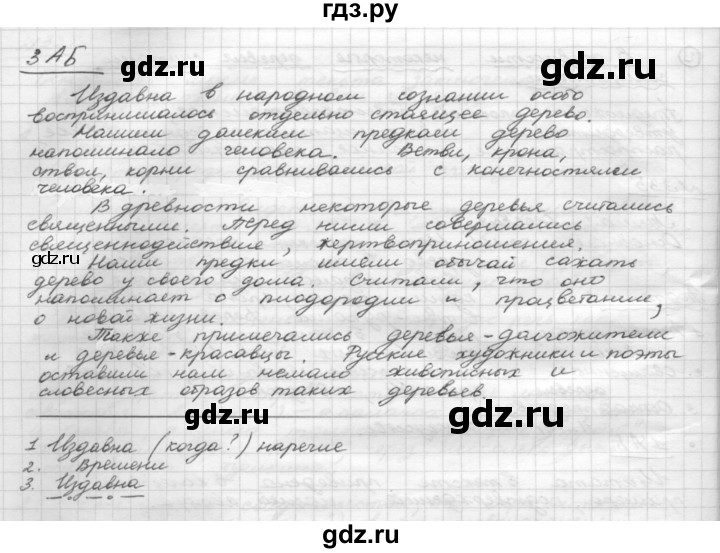 гдз.ру
3 АБ
gdz.ru gdz.ru
Издавна в народном сознании особо
воспринималось отдельно стаящее дерево.
Нашим данским предкаем дерево
напоминало человека. Ветви, крона,
ствол, корни сравнивались с конечностями
человека.
gdz.ru gdz.ru
В древности некоторые деревья считались
священными. Перед ними совершались
священнодействие, жертвоприношения.
gdz.ru gdz.ru
Наши предки имели обычай сажать
дерево у своего дома. Считали, что оно
напоминает о плодородии и процветание,
о новой жизни.
gdz.ru
Также примечались деревья-долгожители
и деревья-красавцы. Русские художники и поэты
оставили нам немало животисных и
словесных образов таких деревьев.
gdz.ru gdz.ru
1 Издавна (когда?) наречие
2. Времени
3. Издавна
gdz.ru gdz.ru
gdz.ru